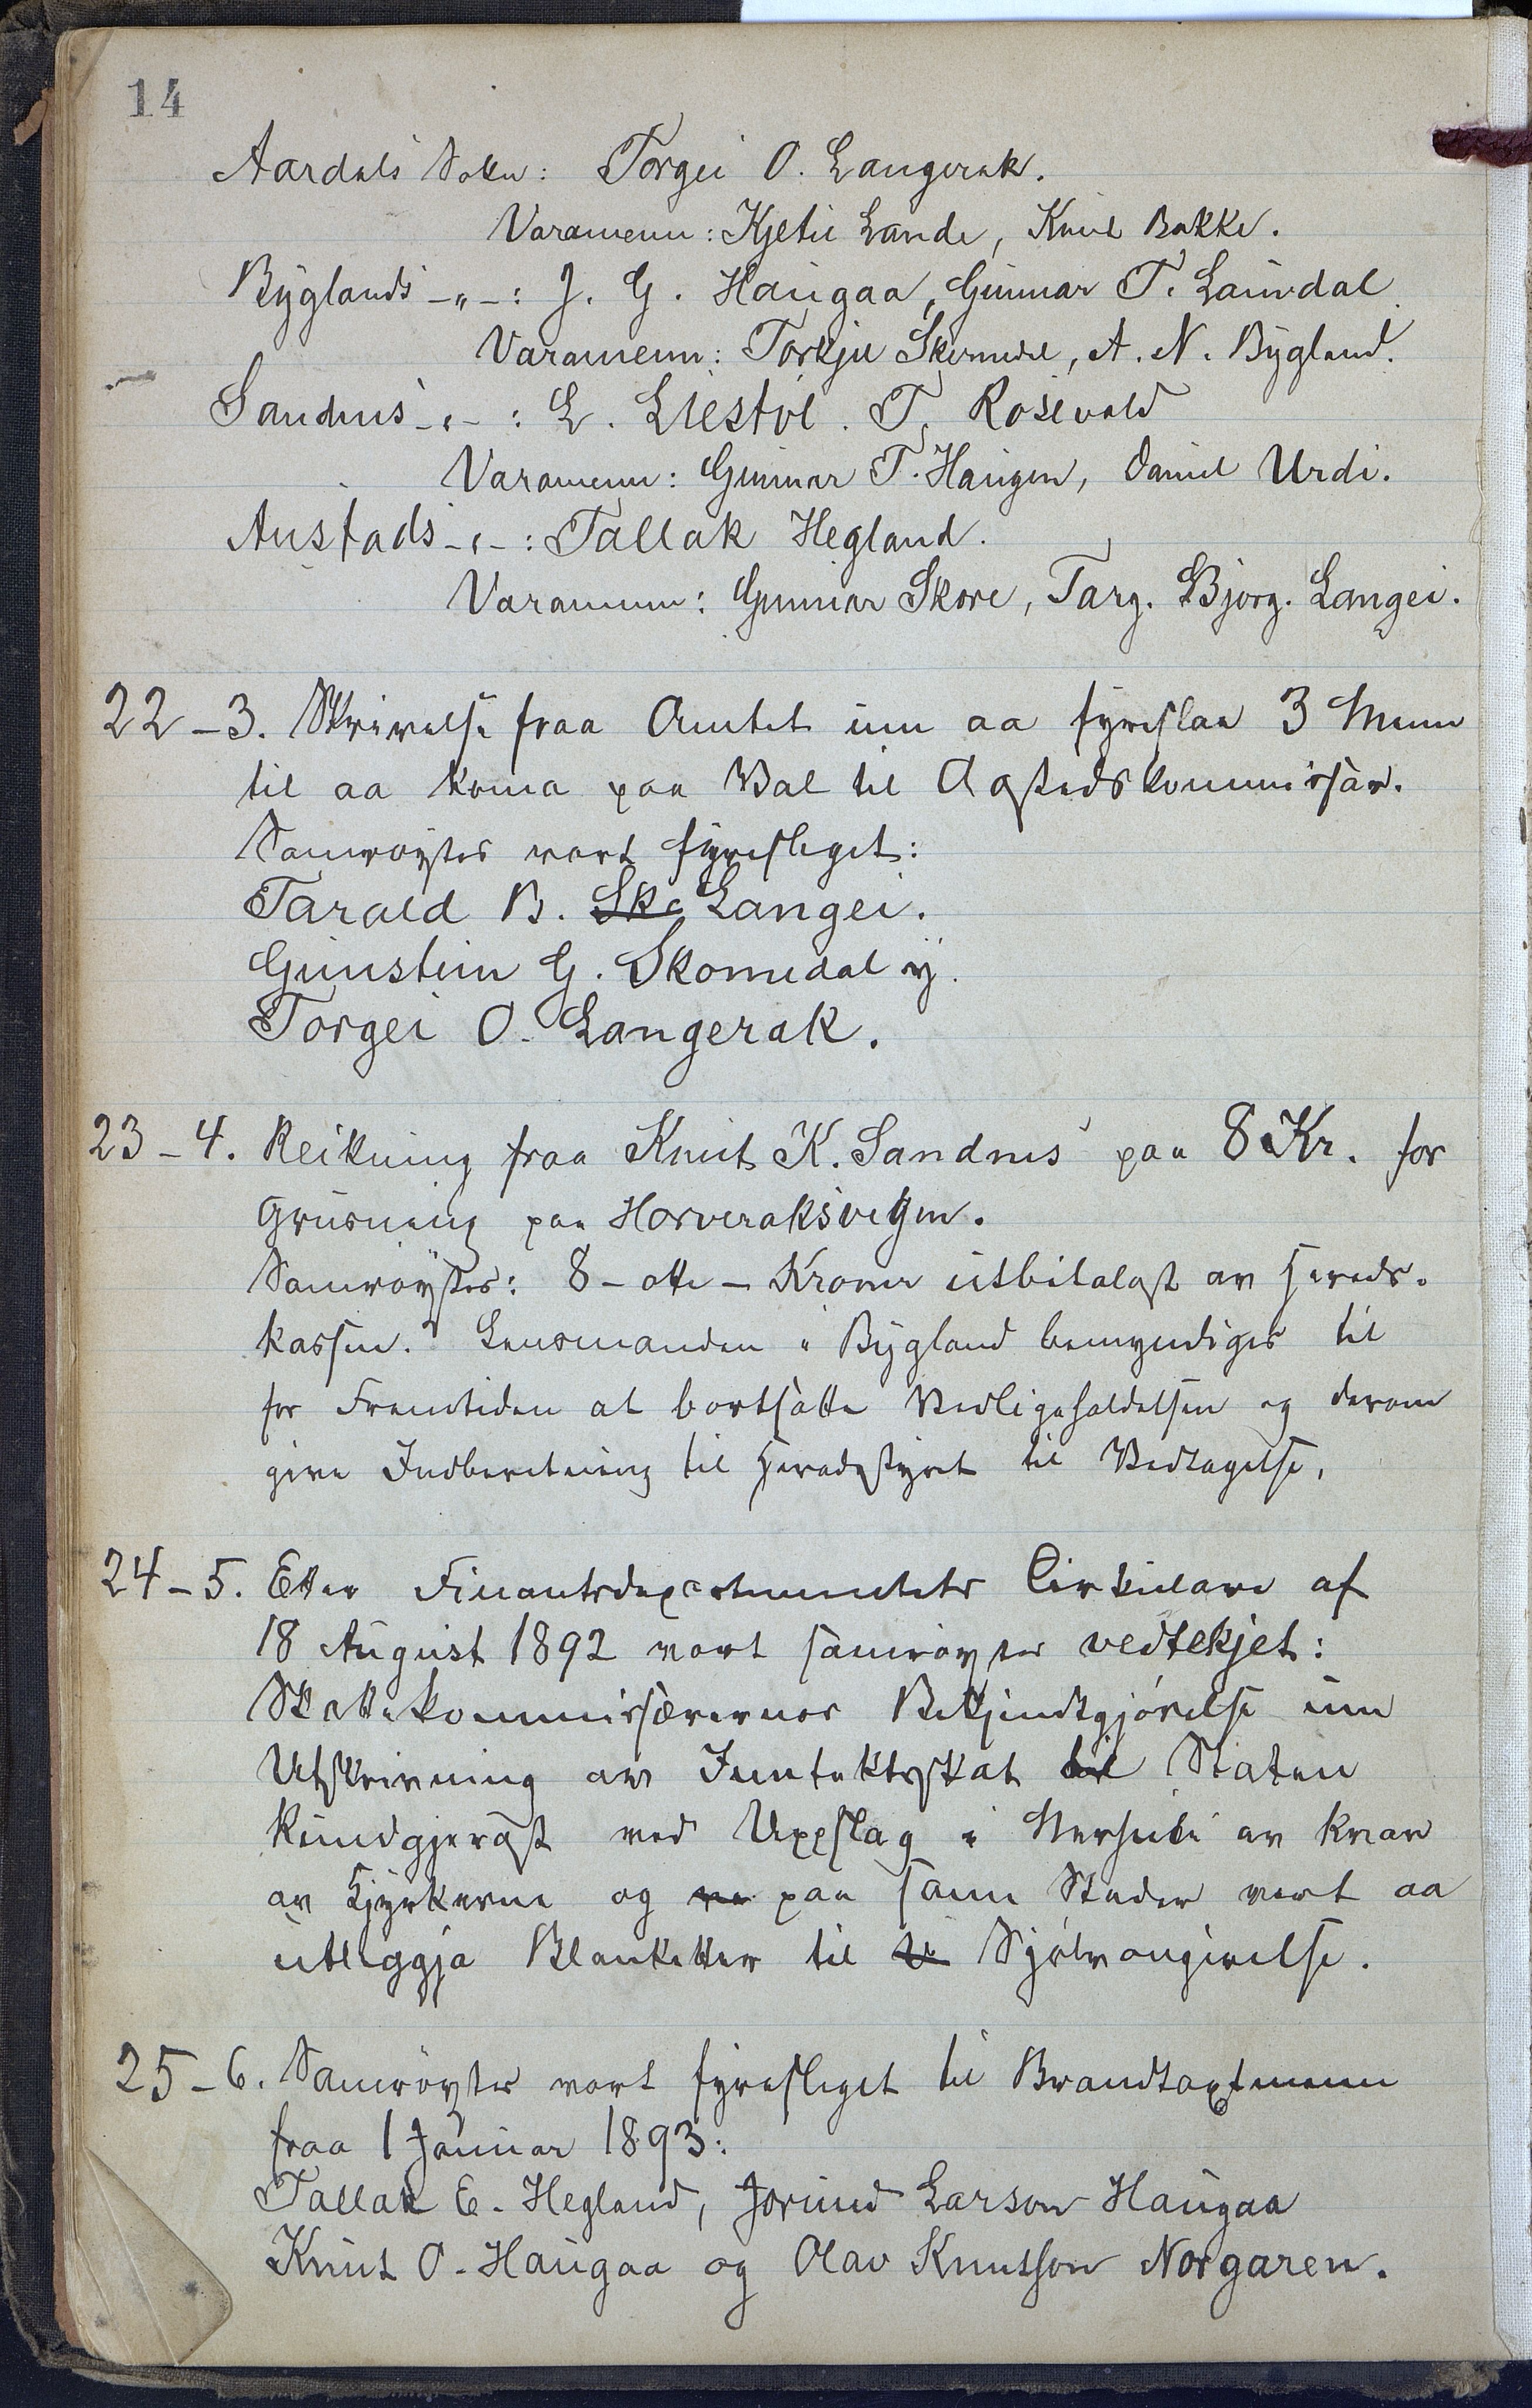 14
Aardals Sokn: Torgei O. Langerak.
Varamenn: Kjetil Lande, Knut Bakke.
Byglands -„-: J. G. Haugaa, Gunnar T. Lauvdal
Varamenn: Torkjel Skomedal, A. N. Bygland.
Sandnes -„-: L. Liestøl. T. Rosevold
Varamenn: Gunnar T. Haugen, Daniel Urdi.
Austads -„-: Tallak Hegland.
Varamenn: Gunnar Skore, Targ. Bjørg. Langei.
22-3. Skrivelse fraa Amtet um aa fyreslaa 3 Menn
til aa koma paa Val til Agstedskommissær.
Samrøystes vart fyreslegit:
Tarald B. Sko Langei.
Gunstein G. Skomedal y.
Torgei O. Langerak.
23-4. Reikning fraa Knut K. Sandnes paa 8 Kr. for
Grusning paa Horveraksvegen.
Samrøystes: 8 - otte - Kroner utbitalast av Herads-
kassen. Lensmanden i Bygland bemyndiges til
for Fremtiden at bortsætte Vedligeholdelsen og derom
give Indberetning til Heradsstyret til Vedtagelse.
24-5. Etter Finantsdepartementets Cirkulære af
18 August 1892 vart samrøystes vedtekjet:
Skattekommissærernes Bekjendtgjørelse um
Utskrivning av Inntektsskat til Staten
kundgjerast ved Uppslag i Nærheti av kvar
av Kjyrkerne og ve paa same Stader vert aa
utleggja Blanketter til Sjølvangivelse.
25-6. Samrøystes vart fyreslegit til Brandtaxtmenn
fraa 1 Januar 1893:
Tallak E. Hegland, Jorund Larson Haugaa
Knut O. Haugaa og Olav Knutson Norgaren.